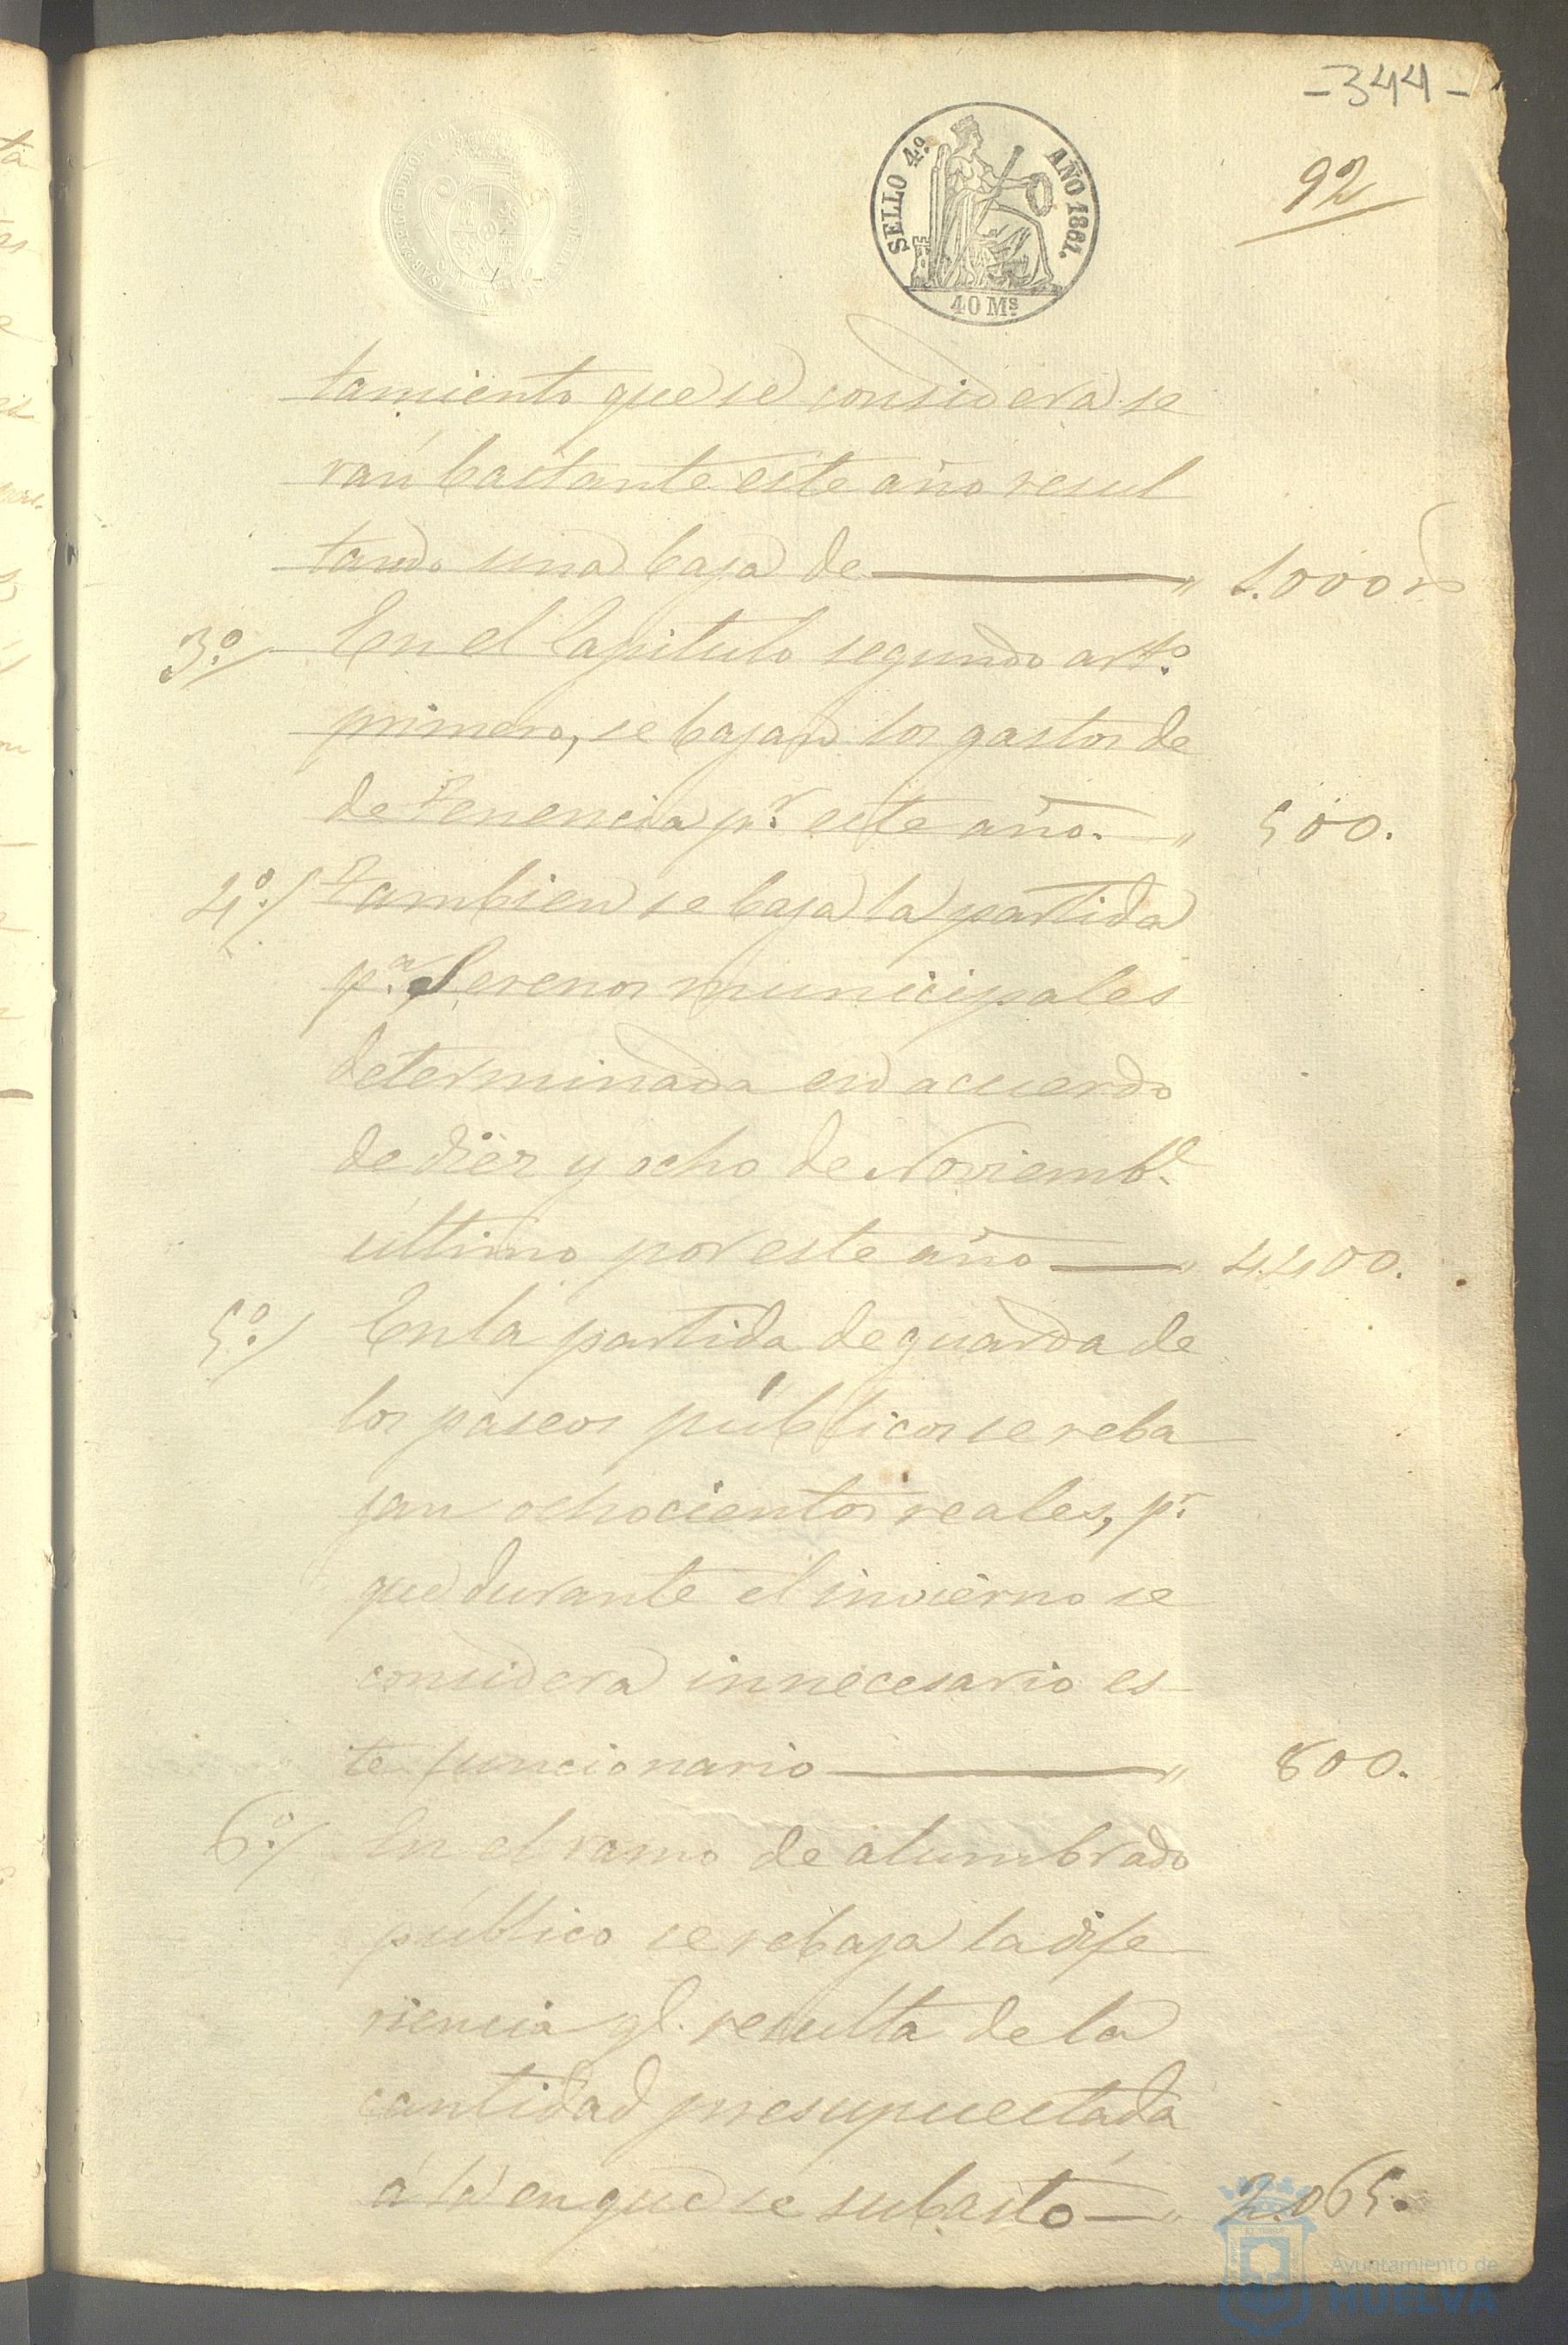 -344-
92
SELLO 4.º AÑO 1861.
40 Ms
tamiento que se considera se
ran bastante este año resul
tando una baja de — " 1.000 rs
3.º/ En el Capitulo segundo artº.
primero, se bajan los gastos de
de Tenencia pr. este año. — " 500.
4.º/ Tambien se baja la partida
pª. Serenos municipales
determinada en acuerdo
de diez y ocho de Noviembe.
último por este año — " 4.400.
5.º/ En la partida de guarda de
los paseos públicos se reba
jan ochocientos reales, pr.
que durante el invierno se
considera innecesario es
te funcionario — " 800.
6.º/ En el ramo de alumbrado
público se rebaja la dife
riencia ql. resulta de la
cantidad presupuestada
á la en que se subastó — " 2.065.
Ayuntamiento de
HUELVA